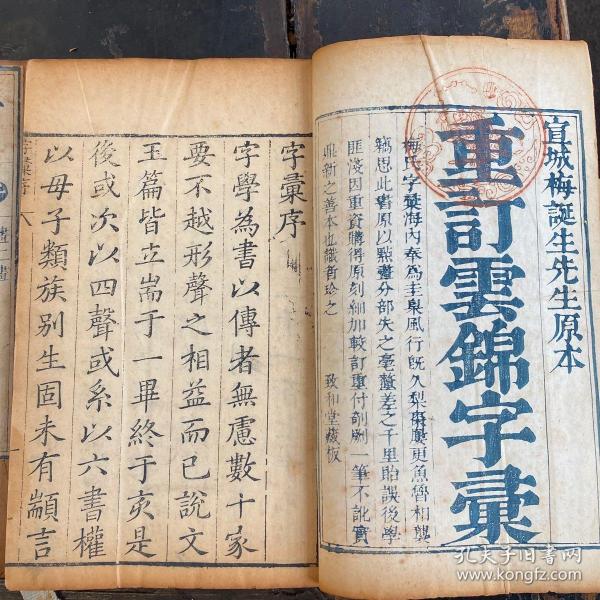 宣城梅誕生先生原本
重訂雲錦字彙
梅氏字彙海內奉為圭臬風行既久梨棗屢更魚魯相襲
竊思此書原以點畫分部失之毫釐差之千里貽誤後學
匪淺因重資購得原刻細加較訂重付剞劂一筆不訛實
鼎新之善本也識者珍之
致和堂藏板
字彙序
字學為書以傳者無慮數十家
要不越形聲之相益而已說文
玉篇皆立耑于一畢終于亥是
後或次以四聲或系以六書權
以母子類族別生固未有顓言
字彙序
孔夫子旧书网
www.kongfz.com